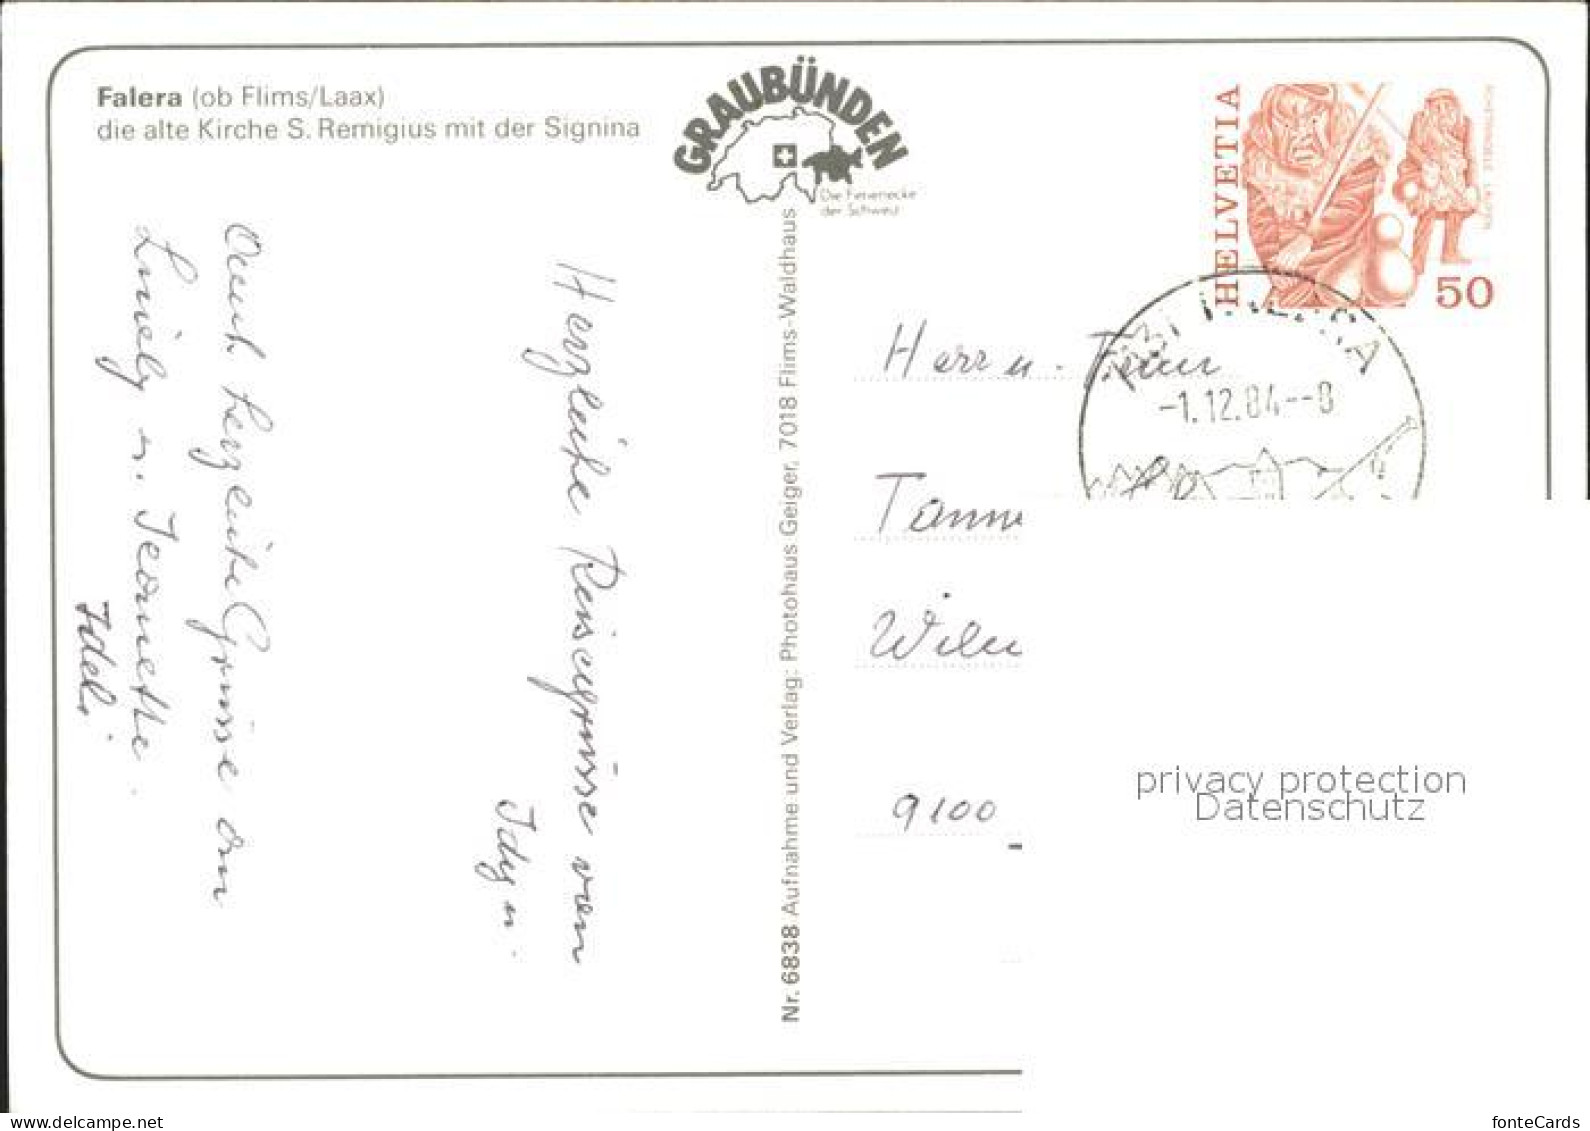 Falera (ob Flims/Laax)
die alte Kirche S. Remigius mit der Signina
GRAUBÜNDEN
Die Ferienecke
der Schweiz
HELVETIA
50
-1.12.84--8
Herr u. Frau
Tann
Wilen
9100
Herzliche Reisegrüsse von
Idy u.
Auch herzliche Grüsse von
u. Jeannette.
Nr. 6838 Aufnahme und Verlag: Photohaus Geiger, 7018 Flims-Waldhaus
privacy protection
Datenschutz
https://www.delcampe.net
fonteCards